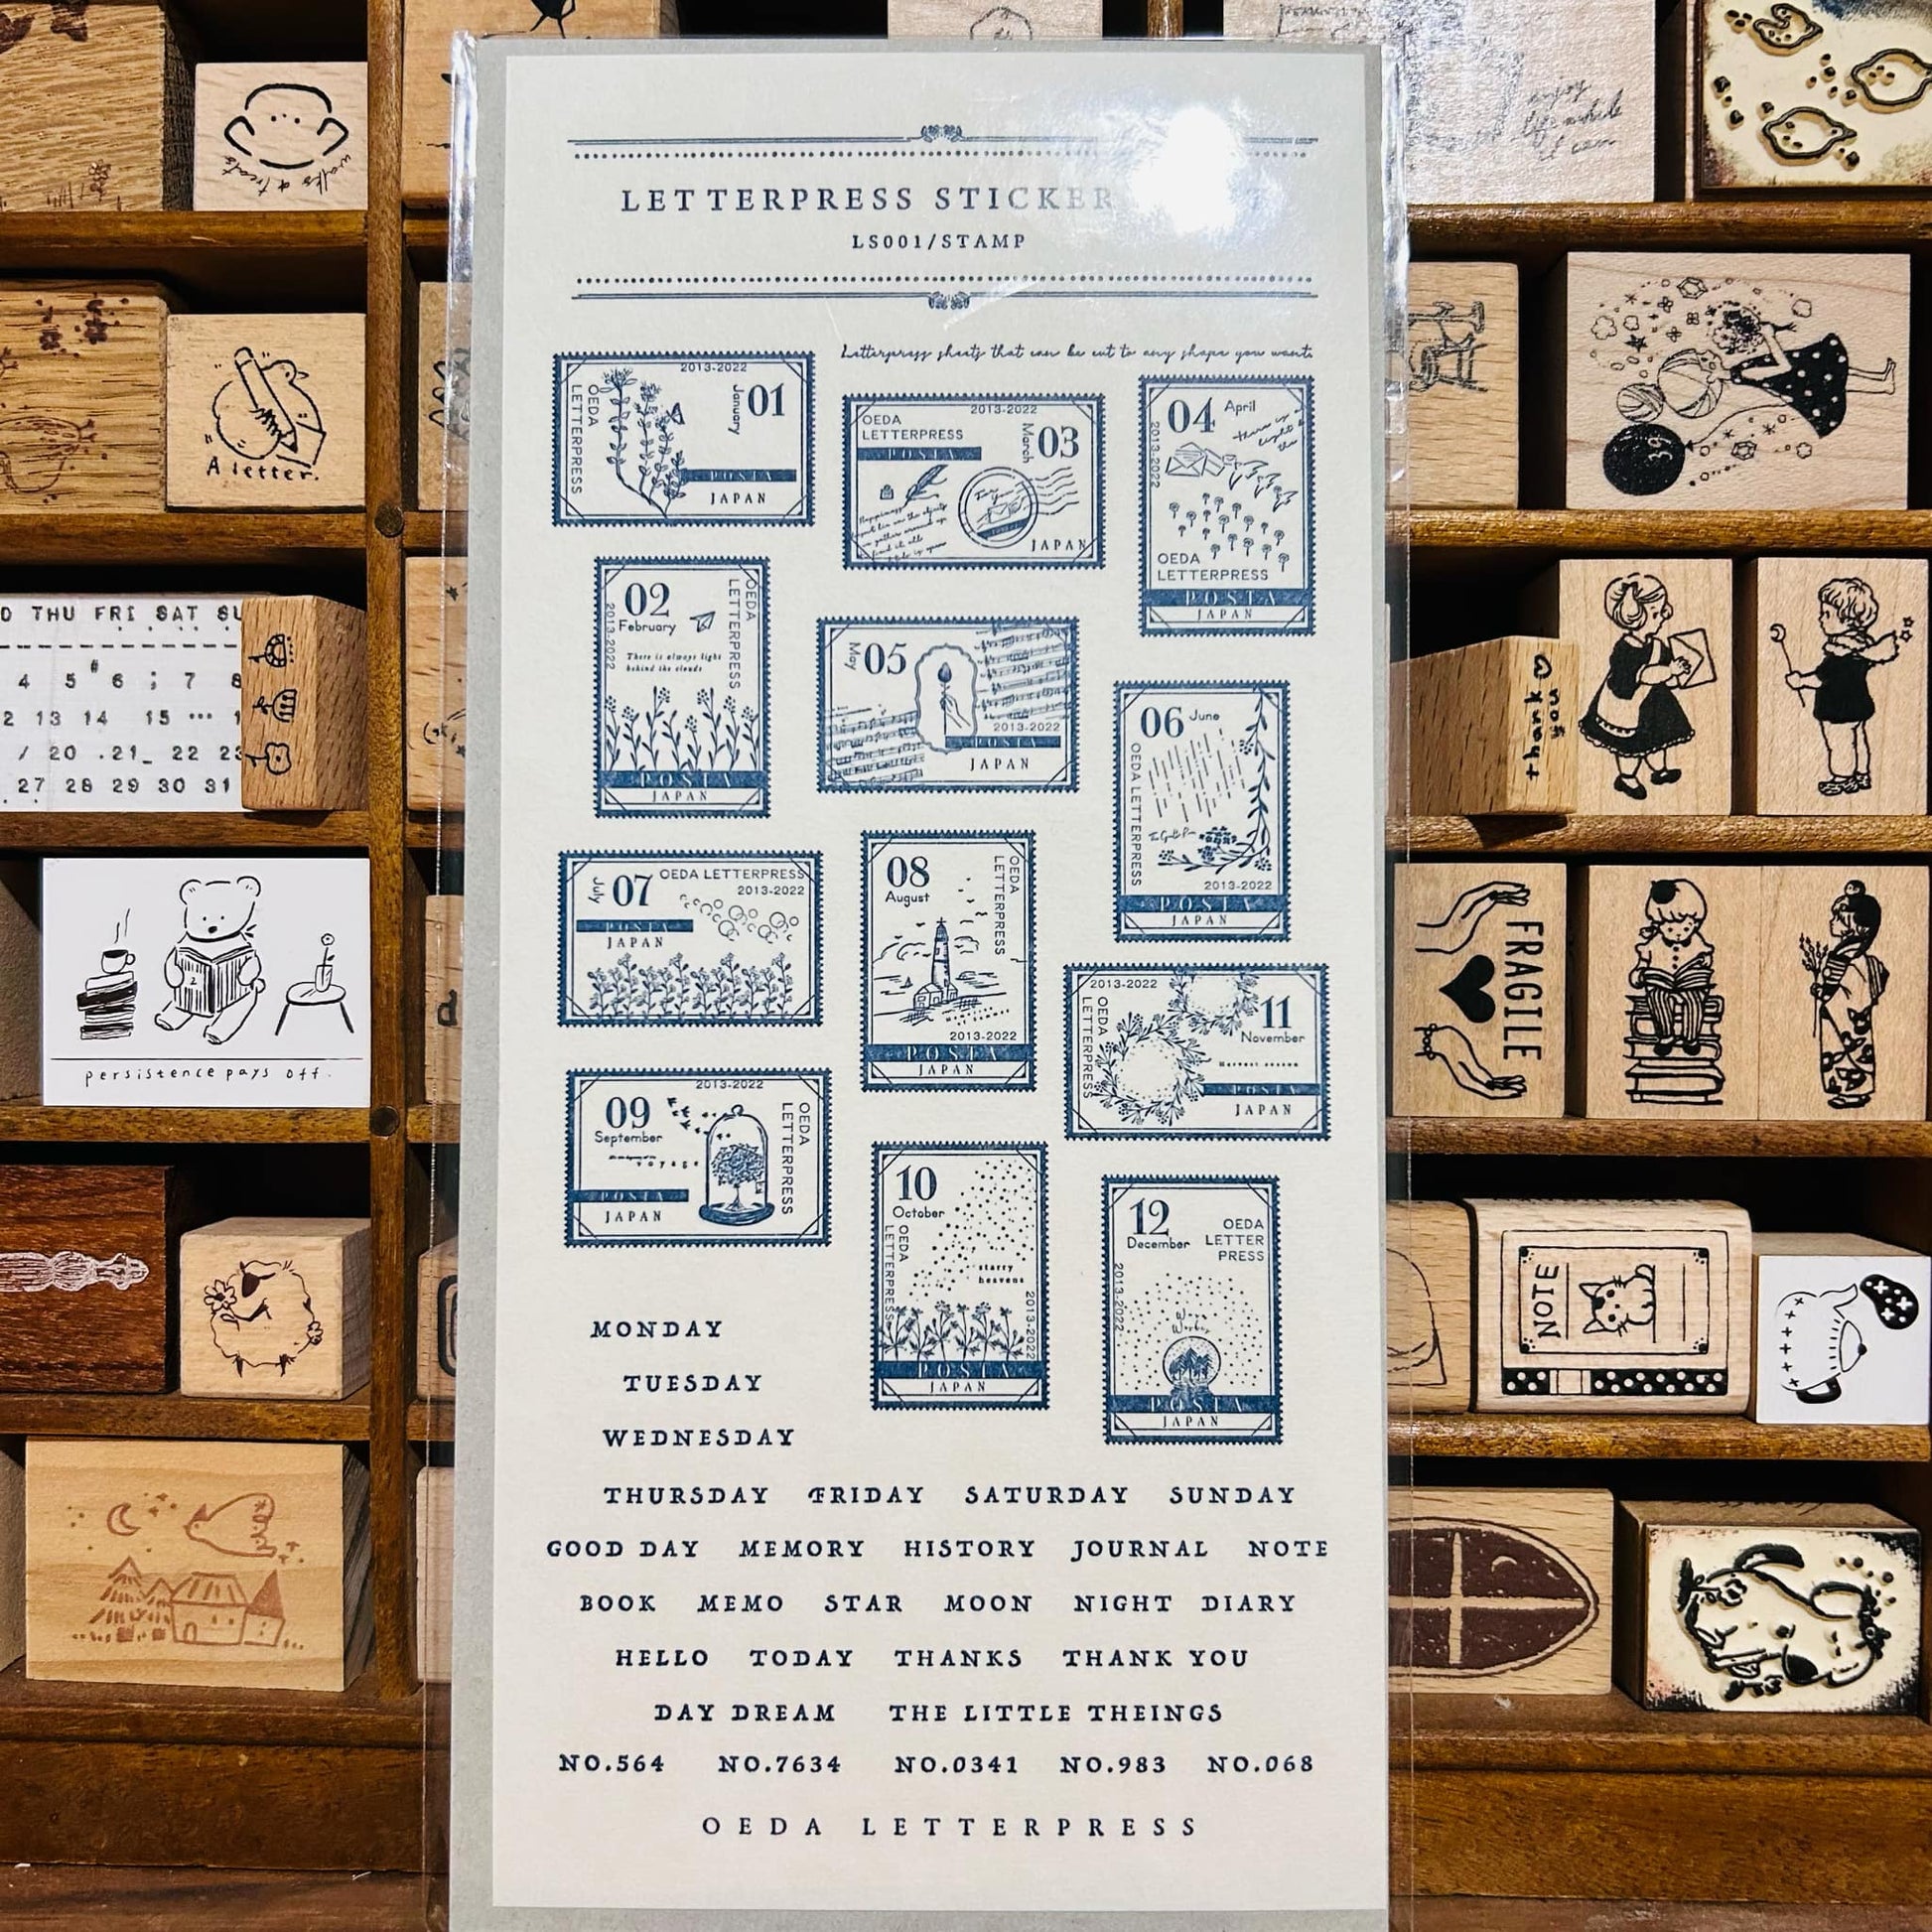 LETTERPRESS STICKER
LS001/STAMP
Letterpress sheets that can be cut to any shape you want.
2013-2022
OEDA
LETTERPRESS
January
01
POSTA
JAPAN
2013-2022
OEDA
LETTERPRESS
March
03
POSTA
JAPAN
04
April
2013-2022
OEDA
LETTERPRESS
POSTA
JAPAN
02
February
2013-2022
OEDA
LETTERPRESS
There is always light
behind the clouds
POSTA
JAPAN
May
05
2013-2022
POSTA
JAPAN
06 June
OEDA LETTERPRESS
2013-2022
POSTA
JAPAN
July
07
OEDA LETTERPRESS
2013-2022
POSTA
JAPAN
08
August
OEDA
LETTERPRESS
2013-2022
POSTA
JAPAN
2013-2022
OEDA
LETTERPRESS
11
November
Harvest season
POSTA
JAPAN
2013-2022
09
September
voyage
OEDA
LETTERPRESS
POSTA
JAPAN
10
October
OEDA
LETTERPRESS
starry
heavens
2013-2022
POSTA
JAPAN
12
December
OEDA
LETTER
PRESS
2013-2022
POSTA
JAPAN
MONDAY
TUESDAY
WEDNESDAY
THURSDAY FRIDAY SATURDAY SUNDAY
GOOD DAY MEMORY HISTORY JOURNAL NOTE
BOOK MEMO STAR MOON NIGHT DIARY
HELLO TODAY THANKS THANK YOU
DAY DREAM THE LITTLE THEINGS
NO.564 NO.7634 NO.0341 NO.983 NO.068
OEDA LETTERPRESS
walks & treats
A letter.
THU FRI SAT SU
4 5 6 7 8
13 14 15
20 21 22 23
27 28 29 30 31
persistence pays off.
enjoy
life while
I can
thank
you
FRAGILE
NOTE